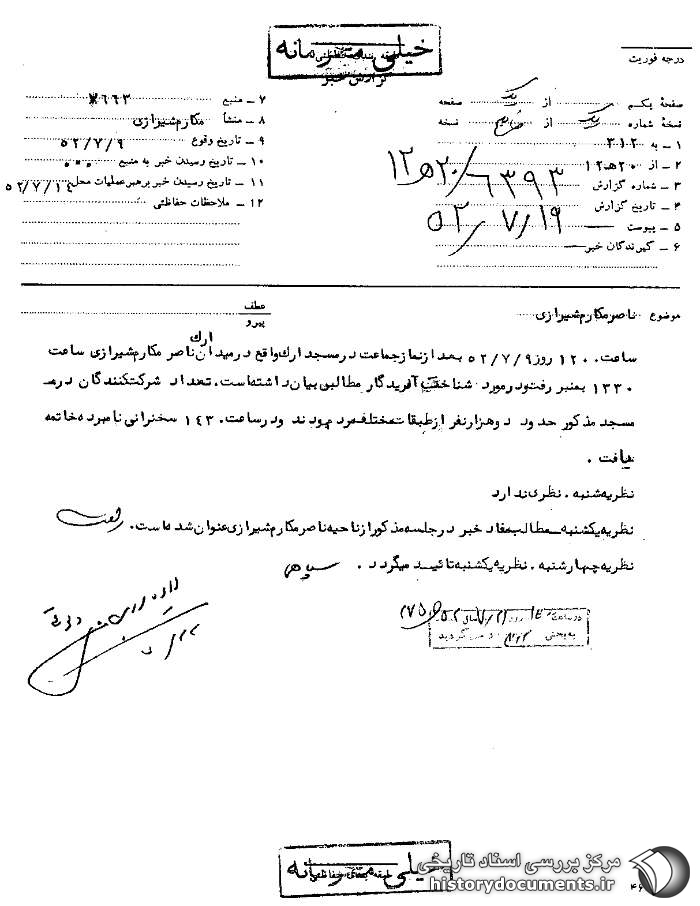 خیلی محرمانه
گزارش خبر
درجه فوریت
صفحه یکم از یک صفحه
نسخه شماره یک از نسخه
۱ ـ به ۳۱۲
۲ ـ از ۲۰ هـ ۱۲
۳ ـ شماره گزارش ۱۲هـ۲۰/۶۳۹۳
۴ ـ تاریخ گزارش ۵۲/۷/۱۹
۵ ـ پیوست
۶ ـ گیرندگان خبر
۷ ـ منبع ۷۶۶۳
۸ ـ منشأ مکارم شیرازی
۹ ـ تاریخ وقوع ۵۲/۷/۹
۱۰ ـ تاریخ رسیدن خبر به منبع ۰۰۰
۱۱ ـ تاریخ رسیدن خبر برهبر عملیات محل ۵۲/۷/۱۴
۱۲ ـ ملاحظات حفاظتی
موضوع ناصر مکارم شیرازی
عطف
پیرو
ساعت ۱۲۰۰ روز ۵۲/۷/۹ بعد از نماز جماعت در مسجد ارك واقع در میدان ارك ناصر مکارم شیرازی ساعت
۱۳۳۰ بمنبر رفت و در مورد شناخت آفریدگار مطالبی بیان داشته است. تعداد شرکت کنندگان در
مسجد مذکور حدود دو هزار نفر از طبقات مختلف مردم بودند و در ساعت ۱۴۳۰ سخنرانی نامبرده خاتمه
یافت .
نظریه شنبه . نظری ندارد
نظریه یکشنبه ـ مطالب مفاد خبر در جلسه مذکور از ناحیه ناصر مکارم شیرازی عنوان شده است.
نظریه چهارشنبه . نظریه یکشنبه تائید میگردد . سپاهی
در ساعت روز
به بخش ۳۱۲ گردید
خیلی محرمانه
مرکز بررسی اسناد تاریخی
historydocuments.ir
۴۶